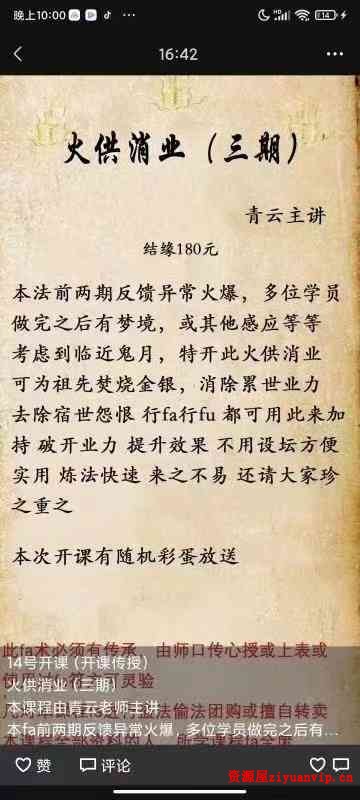 晚上10:00
14
16:42
火供消业（三期）
青云主讲
结缘180元
本法前两期反馈异常火爆，多位学员
做完之后有梦境，或其他感应等等
考虑到临近鬼月，特开此火供消业
可为祖先焚烧金银，消除累世业力
去除宿世怨恨 行fa行fu 都可用此来加
持 破开业力 提升效果 不用设坛方便
实用 炼法快速 来之不易 还请大家珍
之重之
本次开课有随机彩蛋放送
此fa术必须有传承，由师口传心授或上表或
14号开课（开课传授）
灵验
火供消业（三期）
偷法团购或擅自转卖
本课程由青云老师主讲
本fa前两期反馈异常火爆，多位学员做完之后有...
赞
评论
资源屋ziyuanvip.cn